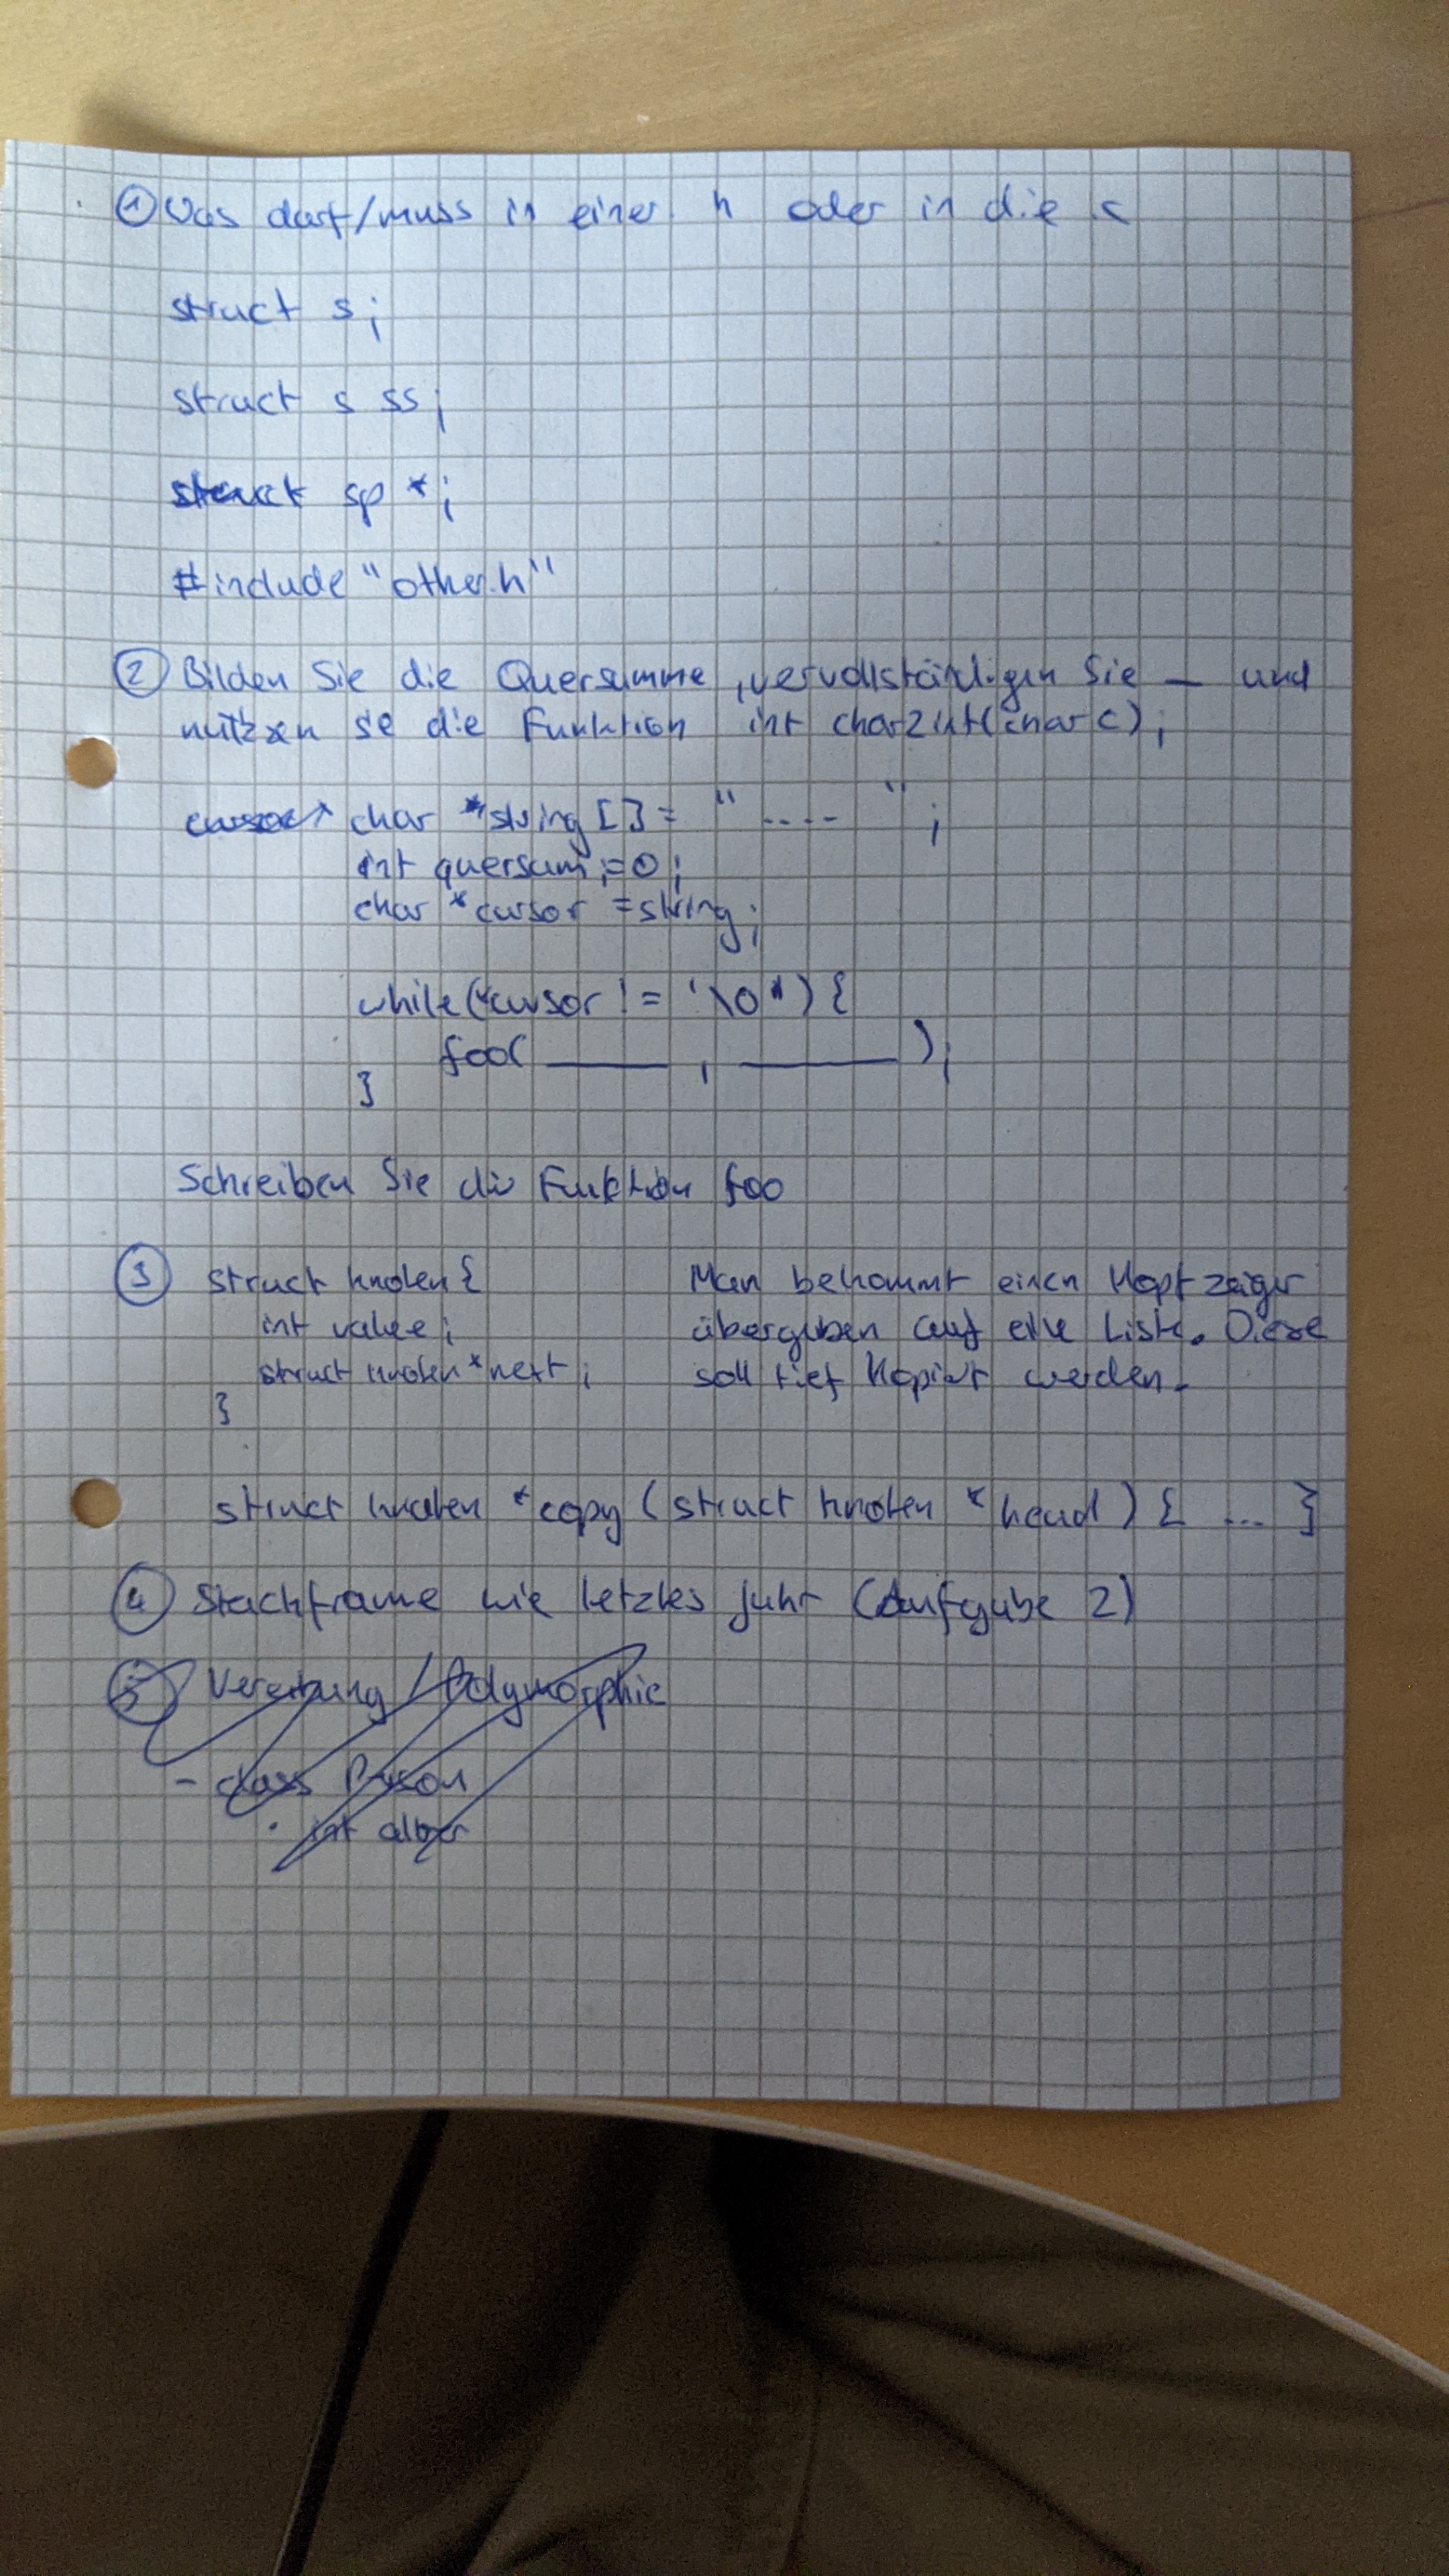 ① Was darf/muss in einer h oder in die c
struct s;
struct s ss;
struct sp *;
#include "other.h"
② Bilden Sie die Quersumme, vervollständigen Sie _ und
nutzen se die Funktion int char2int(char c);
char *string [] = " ---- " ;
int quersum = 0;
char *cursor = string;
while(*cursor != '\0') {
foo( ____ , ____ );
}
Schreiben Sie die Funktion foo
③ struct knoten {
int value;
struct knoten *next;
}
Man bekommt einen Kopfzeiger
übergeben auf eine Liste. Diese
soll tief kopiert werden.
struct knoten *copy (struct knoten *head) { ... }
④ Stackframe wie letztes Jahr (Aufgabe 2)
⑤ Vererbung / Polymorphie
- class Person
· int alter